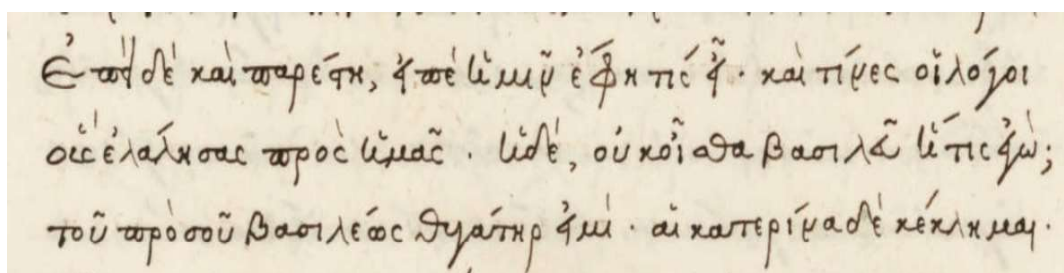 Ἐπεὶ δὲ καὶ παρέστη, εἰπὲ ἡμῖν ἔφη τίς εἶ· καὶ τίνες οἱ λόγοι
οὓς ἐλάλησας πρὸς ἡμᾶς· ἡ δέ, οὐκ οἶσθα βασιλεῦ ἥτις ἐγώ;
τοῦ πρὸ σοῦ βασιλέως θυγάτηρ εἰμί· αἰκατερίνα δὲ κέκλημαι·